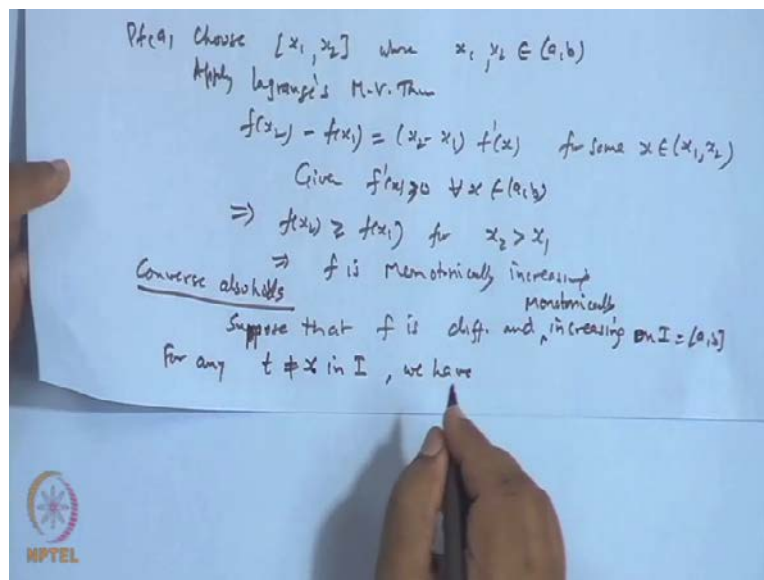 Pf(a) Choose [x₁, x₂] where x₁, x₂ ∈ (a,b)
Apply Lagrange's M.V. Thm
f(x₂) - f(x₁) = (x₂ - x₁) f'(x) for some x ∈ (x₁, x₂)
Given f'(x) ≥ 0 ∀ x ∈ (a,b)
⇒ f(x₂) ≥ f(x₁) for x₂ > x₁
⇒ f is Monotonically increasing
Converse also holds
Monotonically
Suppose that f is diff. and, increasing on I = [a,b]
For any t ≠ x in I, we have
NPTEL